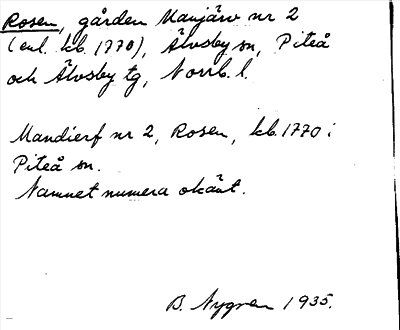 Rosen, gården Manjärv nr 2
(enl. kb. 1770), Älvsby sn, Piteå
och Älvsby tg, Norrb. l.
Mandierf nr 2, Rosen, kb. 1770 i
Piteå sn.
Namnet numera okänt.
B. Nygren 1935.